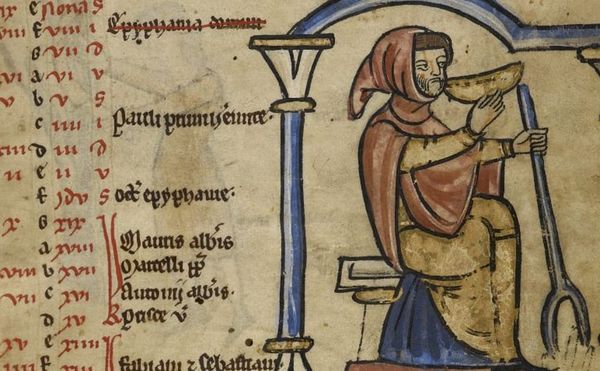 ix e Nonas
f viii i Epyphania domini
g vii d
vi a vi v
b v s
c iiii i Pauli primi h'emite
d iii d
e ii
f Idus Oct' epyphanie.
x g xix
a xviii Mauri abb'is
b xvii Marcelli pp
vii c xvi Antonii abb'is.
d xv Prisce v'
xv e xiiii
f xiii Fabiani ⁊ Sebastiani